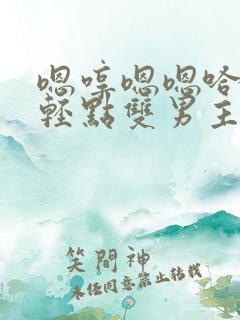 嗯哼嗯嗯哈
輕點雙男主
笑閱神
未經同意禁止轉載